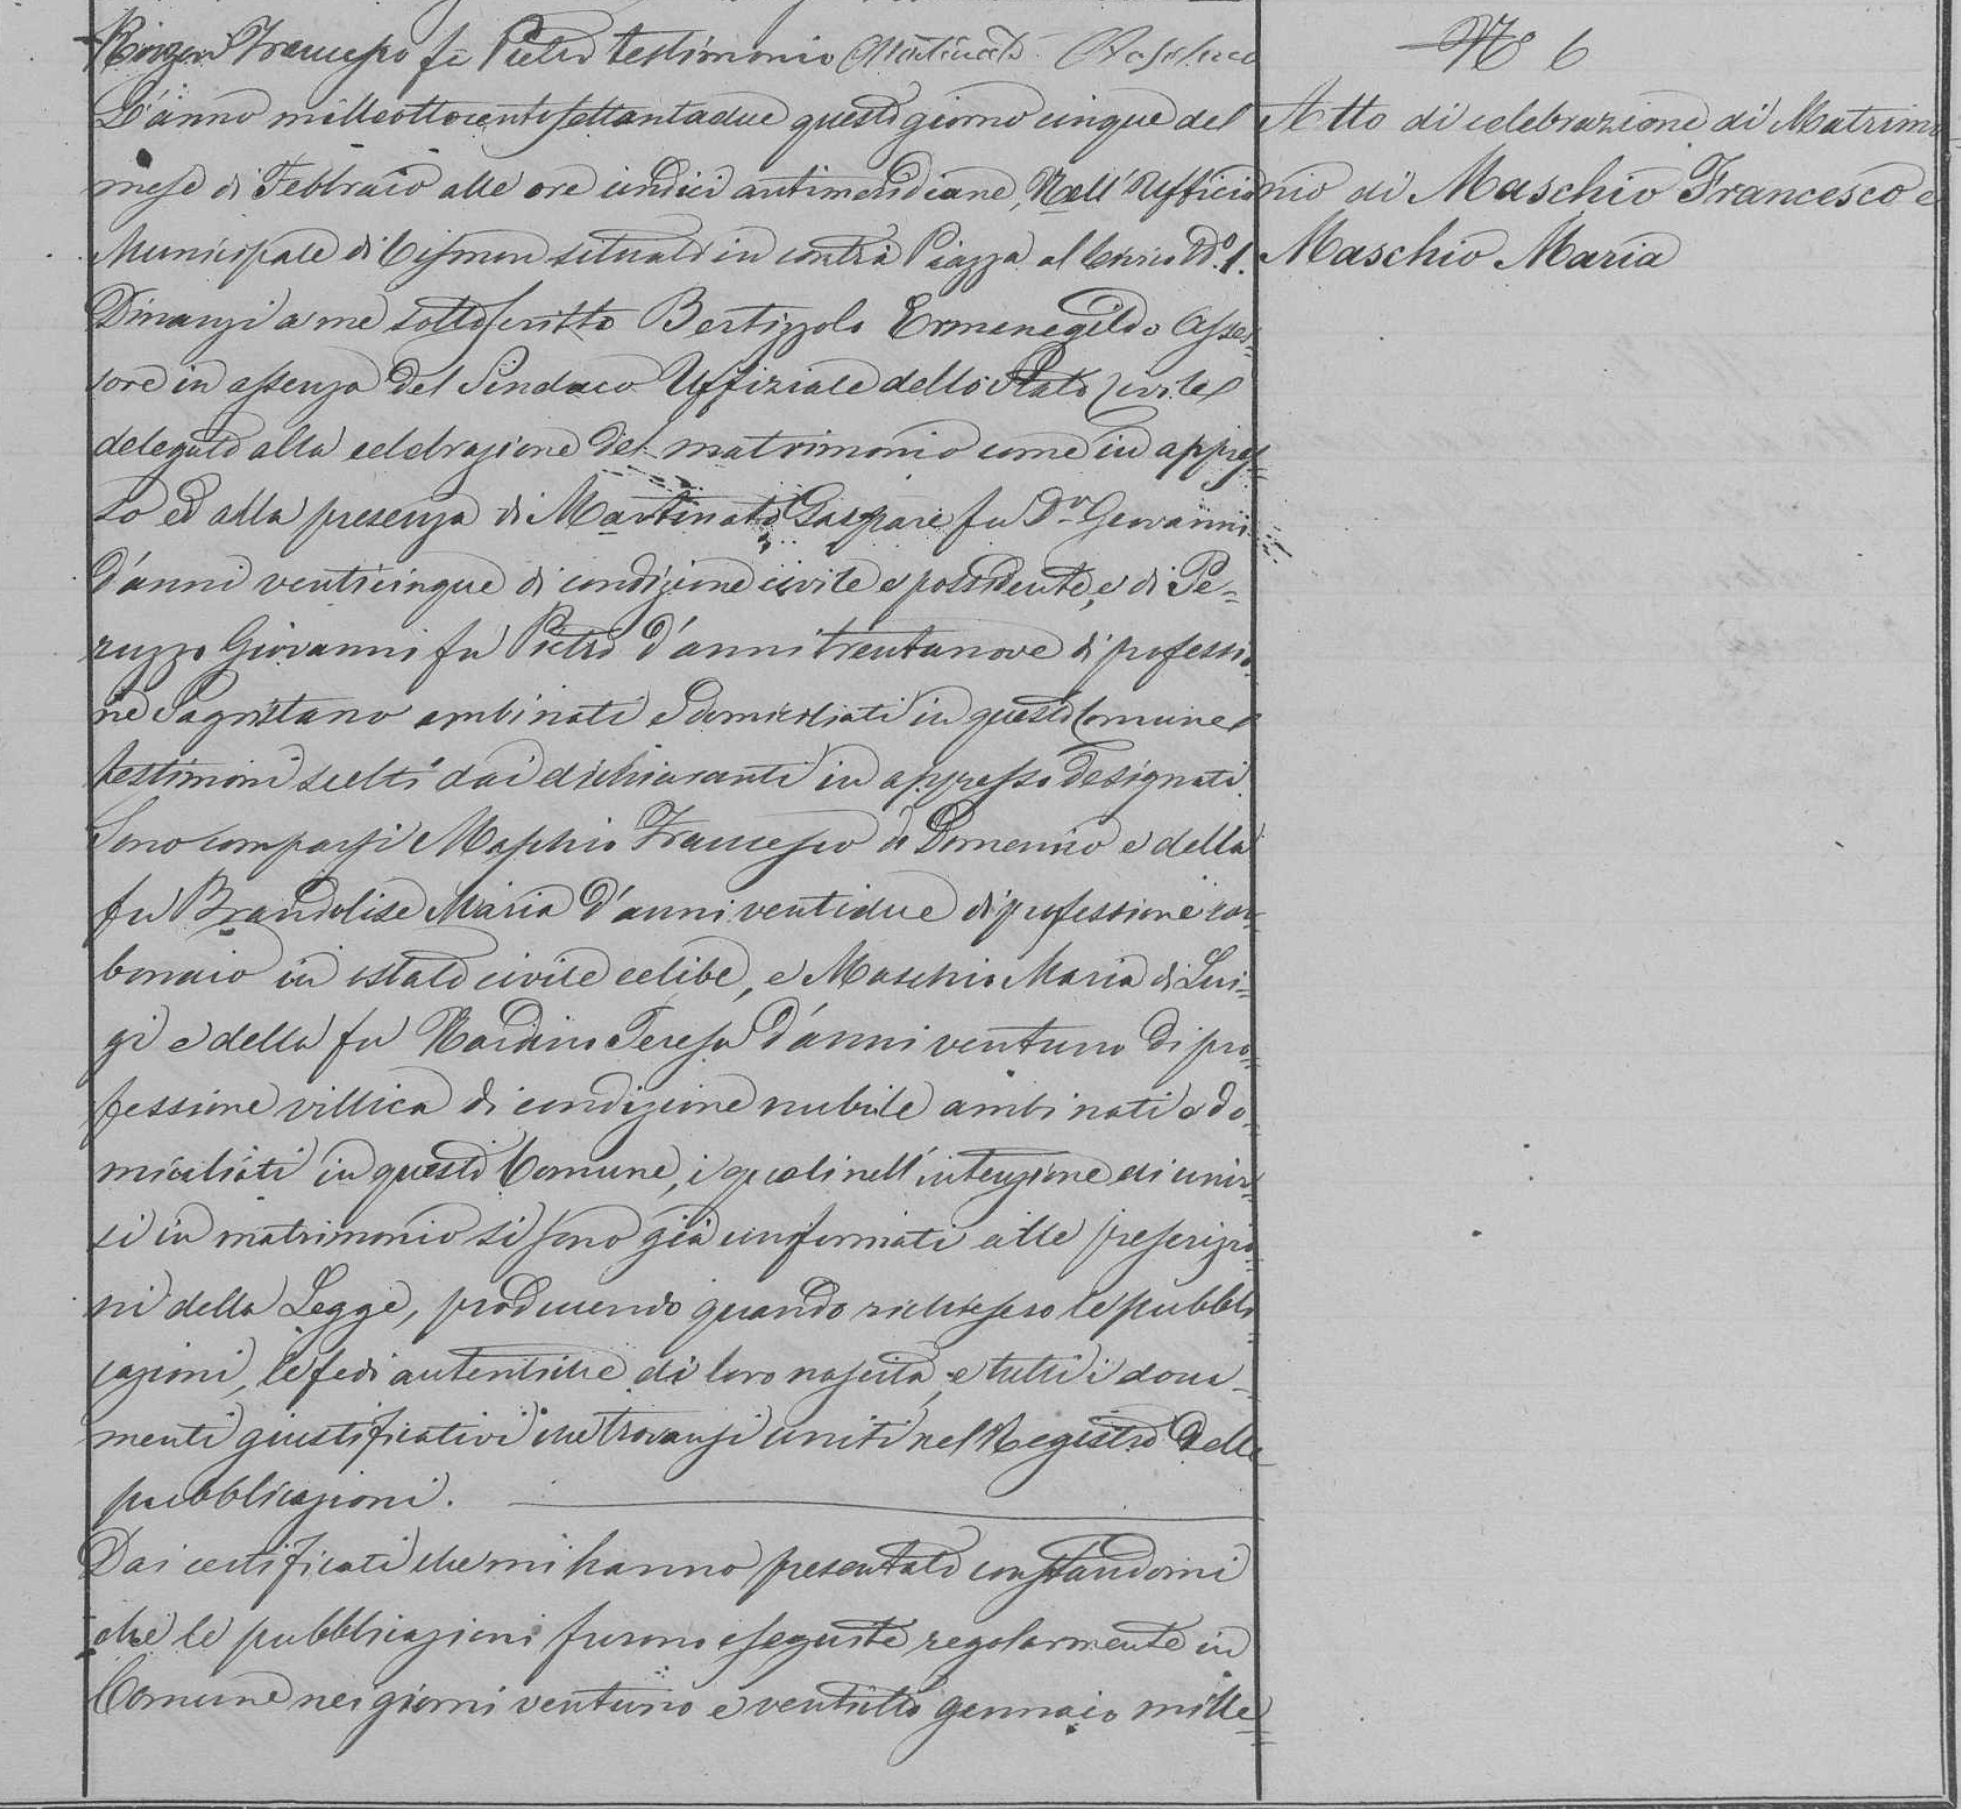 Francesco fu Pietro testimonio Martinato
L'anno milleottocentosettantadue questo giorno cinque del
mese di Febbraio alle ore undici antimeridiane, Nell'Ufficio
Municipale di Cismon situato in contrà Piazza al Civico N.º 1.
Dinanzi a me sottoscritto Bertizzolo Ermenegildo Asses=
sore in assenza del Sindaco Uffiziale dello Stato Civile
delegato alla celebrazione del matrimonio come in appres=
so ed alla presenza di Martinato Gaspare fu Dr Geovanni
d'anni venticinque di condizione civile e possidente, e di Pe=
ruzzo Giovanni fu Pietro d'anni trentanove di professio=
ne Sagrestano ambi nati e domiciliati in questo Comune
testimoni scelti dai dichiaranti in appresso designati.
Sono comparsi Maschio Francesco di Domenico e della
fu Brandolise Maria d'anni ventidue di professione car=
bonaio in istato civile celibe, e Maschio Maria di Lui=
gi e della fu Nardino Teresa d'anni ventuno di pro=
fessione villica di condizione nubile ambi nati e do=
miciliati in questo Comune, i quali nell'intenzione di unir=
si in matrimonio si sono già conformati alle prescrizio=
ni della Legge, producendo quando richiesero le pubbli=
cazioni, le fedi autentiche di loro nascita, e tutti i docu=
menti giustificativi che trovansi uniti nel Registro delle
pubblicazioni.
Dai certificati che mi hanno presentato constandomi
che le pubblicazioni furono eseguite regolarmente in
Comune nei giorni ventuno e ventotto gennaio mille=
Nº 6
Atto di celebrazione di Matrimo=
nio di Maschio Francesco e
Maschio Maria